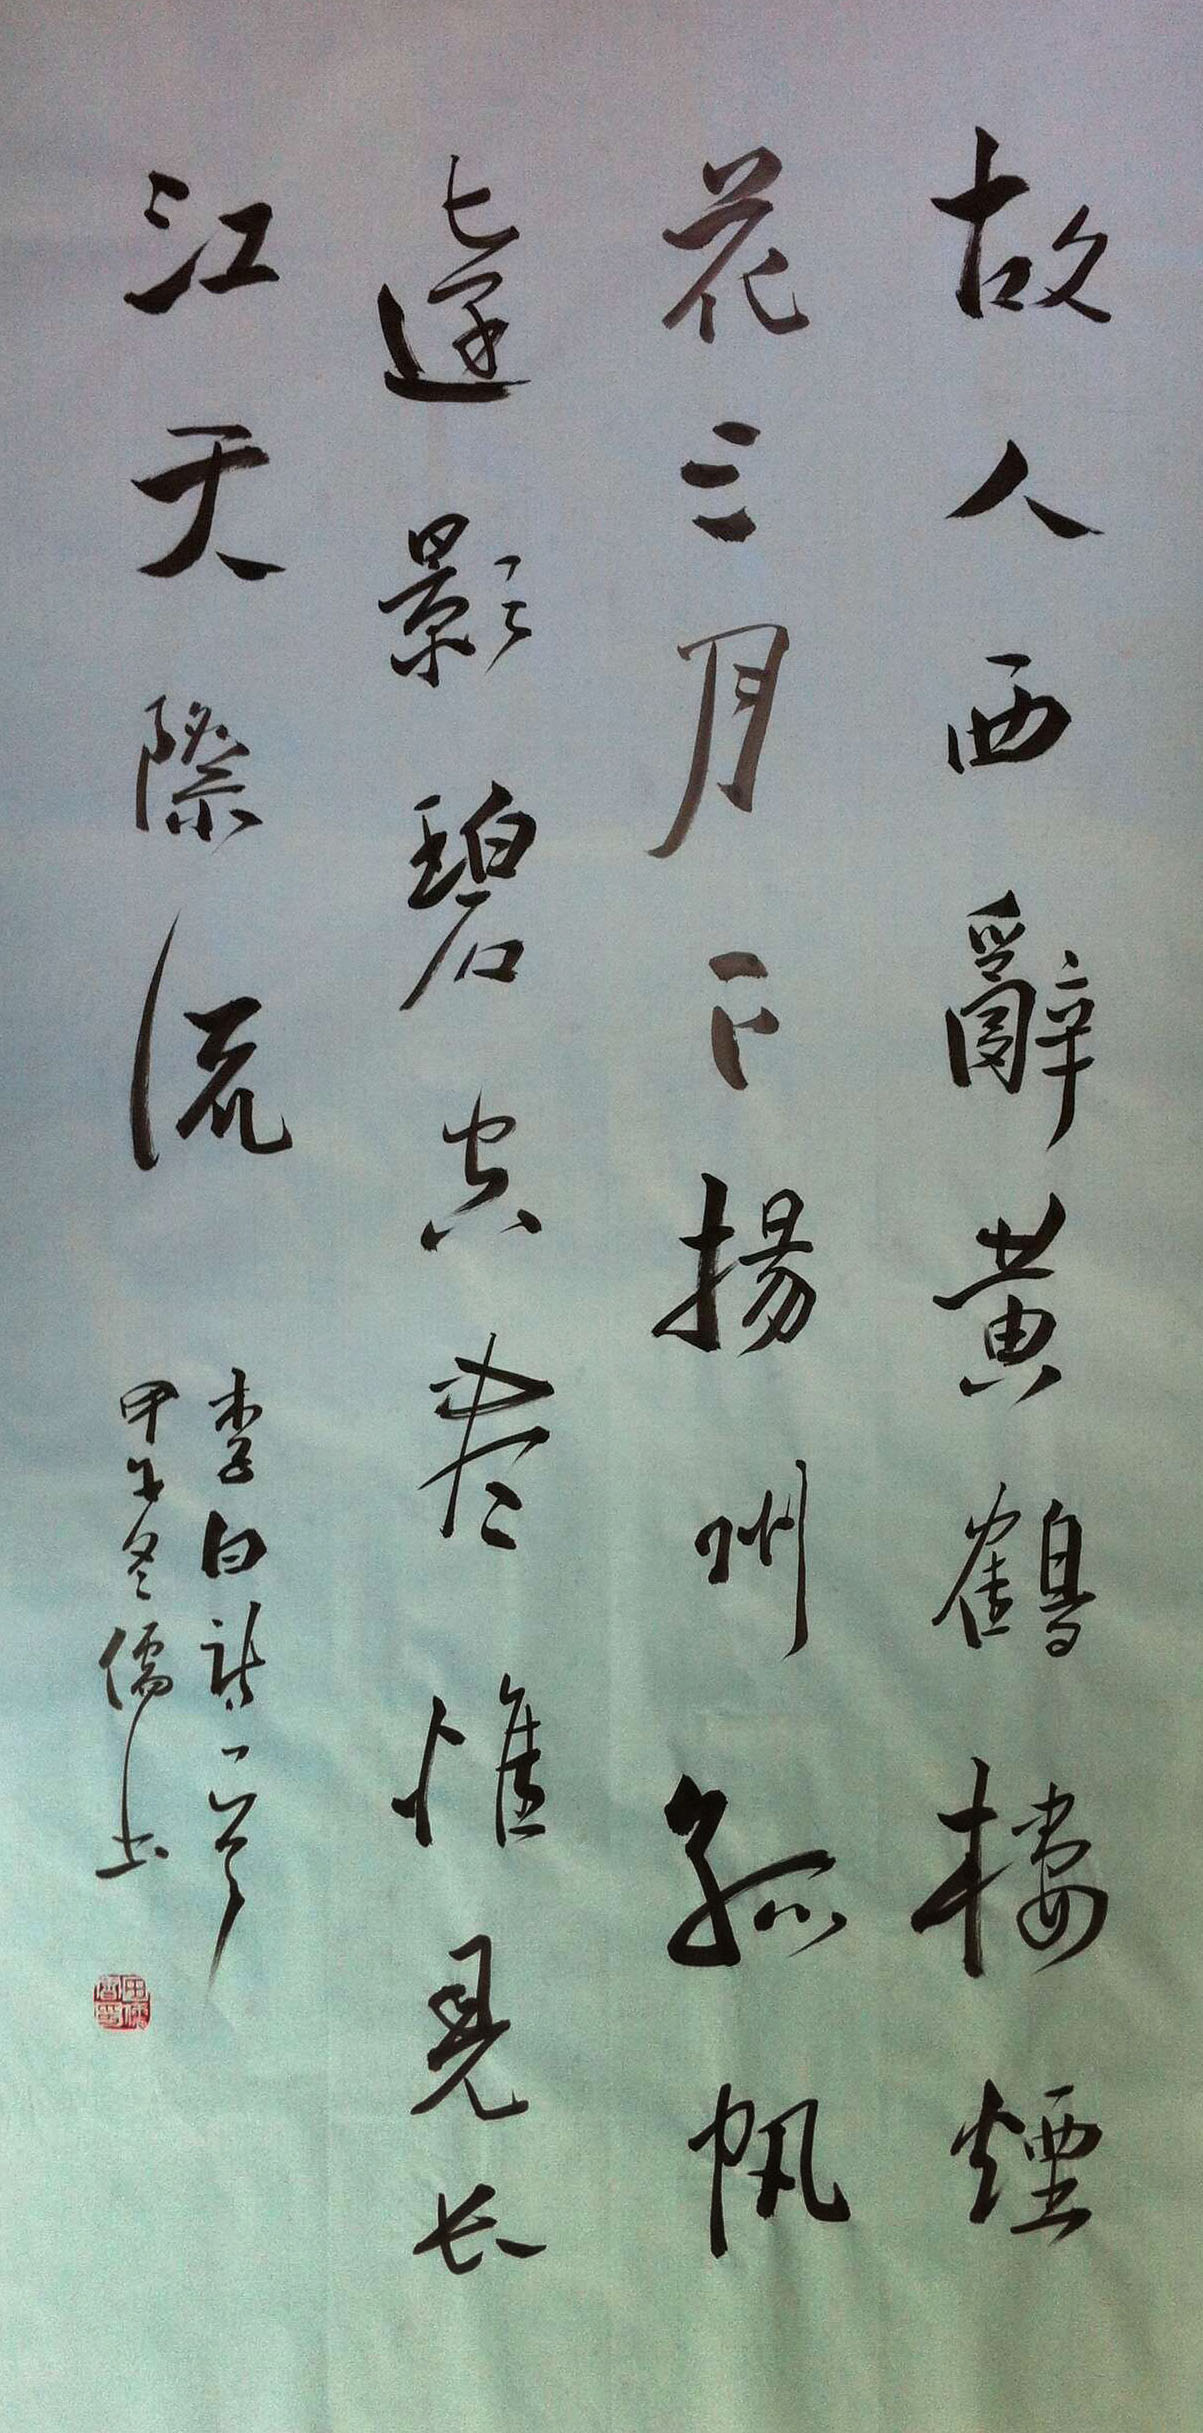 故人西辭黄鶴樓煙
花三月下揚州孤帆
遠影碧空盡惟見长
江天際流
李白詩一首
甲午冬儒